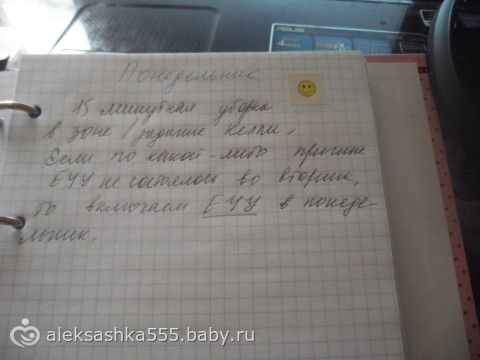 Понедельник
15 минутная уборка
в зоне /задание Келли,
Если по какой-либо причине
ЕЧУ не состоялось во вторник,
то включаем ЕЧУ в понеде-
льник.
ASUS
aleksashka555.baby.ru